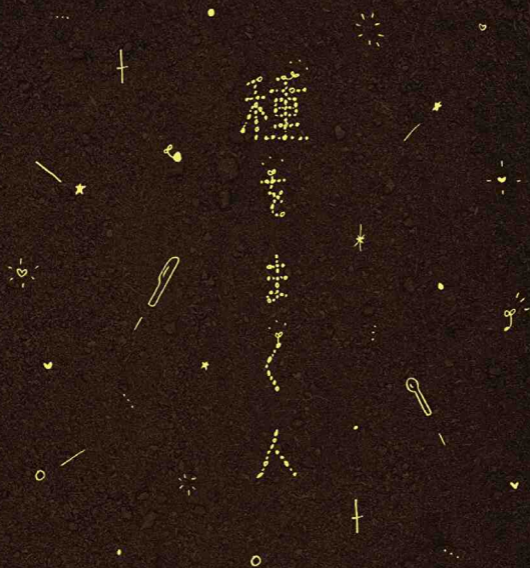 種をまく人